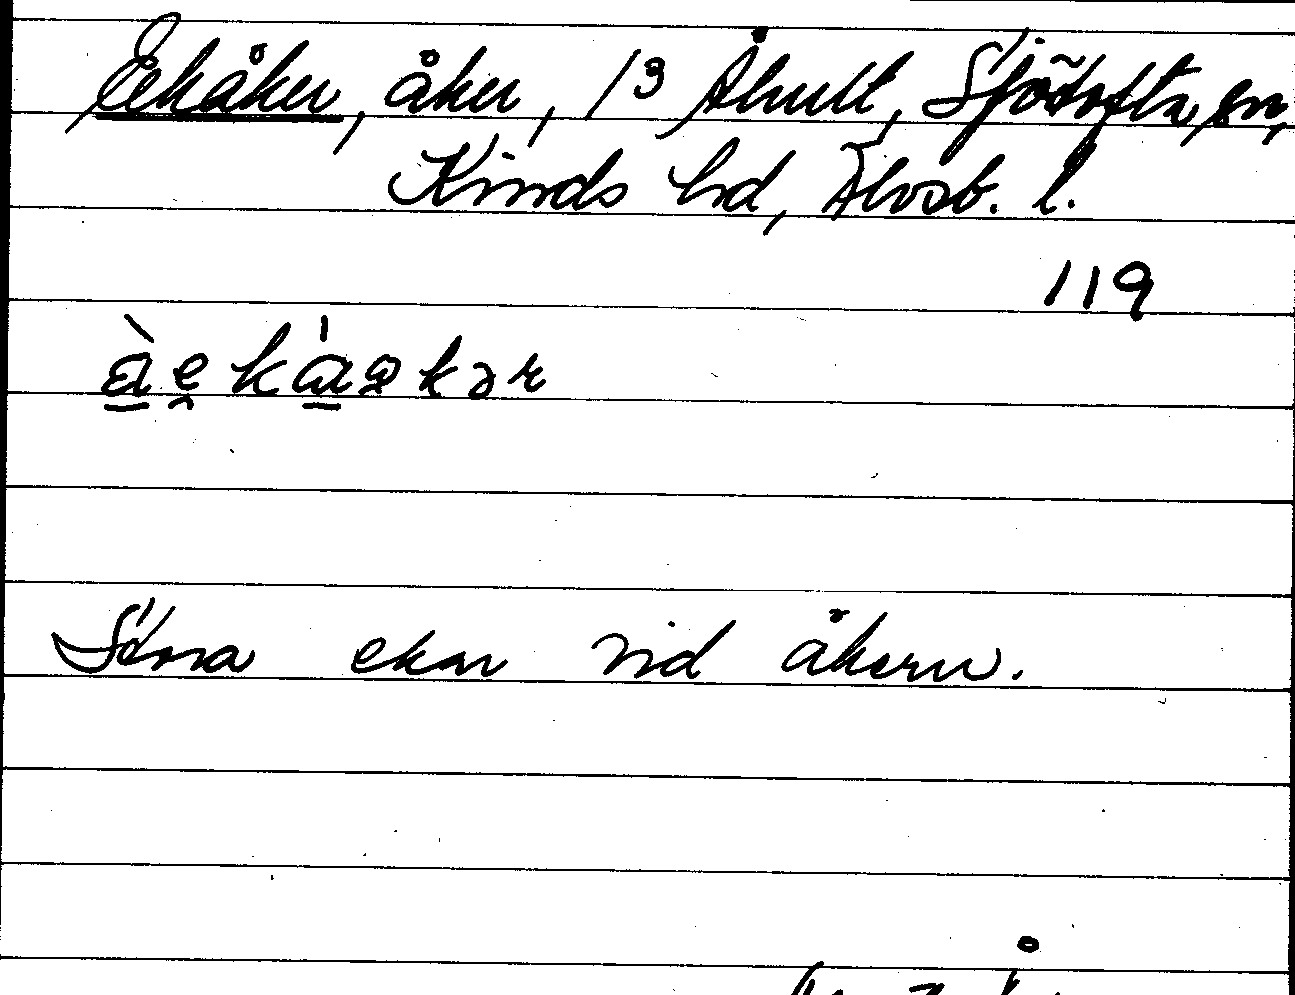 Ekåker, åker, 1³ Åhult, Sjötofta sn,
Kinds hd, Älvsb. l.
119
Stora ekar vid åkern.